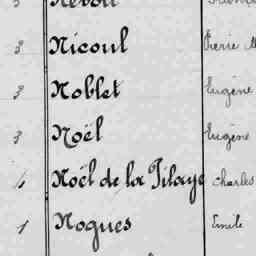 3 Nicoul Pierre M
3 Noblet Eugène
3 Noël Eugène
4 Noël de la Pilaye Charles
1 Nogues Emile